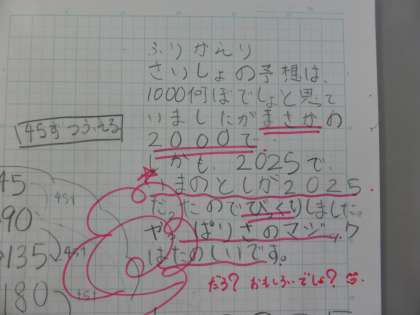 ふりかえり
さいしょの予想は、
1000何ぼでしょと思って
いましたがまさかの
2000で
しかも、2025で、
まのとしが2025
だったのでびっくりしました。
やっぱりさのマジック
はたのしいです。
だろ？おもしろいでしょ？
45ずつふえる
45
90
135
180